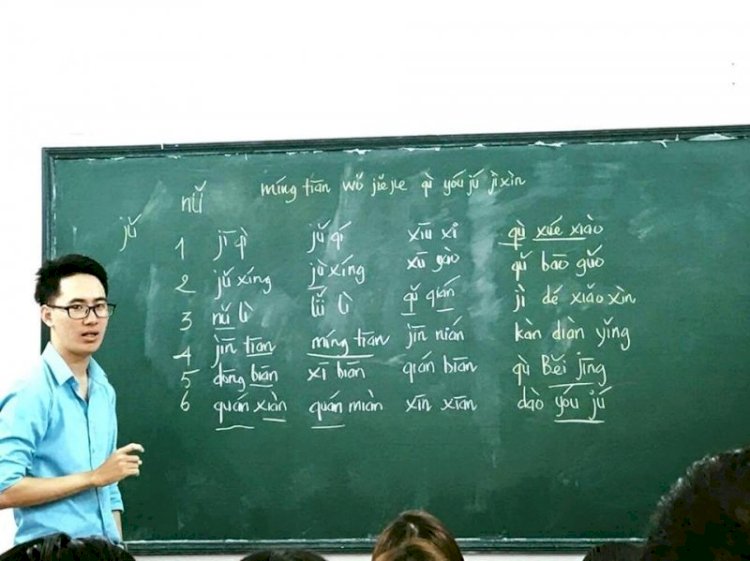 míng tiān wǒ jiějie qì yóu jú jì xìn
nǚ
jǔ
1 jī qì jǔ qí xiū xǐ qù xué xiào
xū gào qǔ bāo guǒ
2 jǔ xíng jù xíng
3 nǔ lì lǚ lì qǔ qián jì dé xiǎo xìn
4 jīn tiān míng tiān jīn nián kàn diàn yǐng
5 dōng biān xī biān qián biān qù Běi jīng
6 quán xiàn quán miàn xīn xiān dào yóu jú